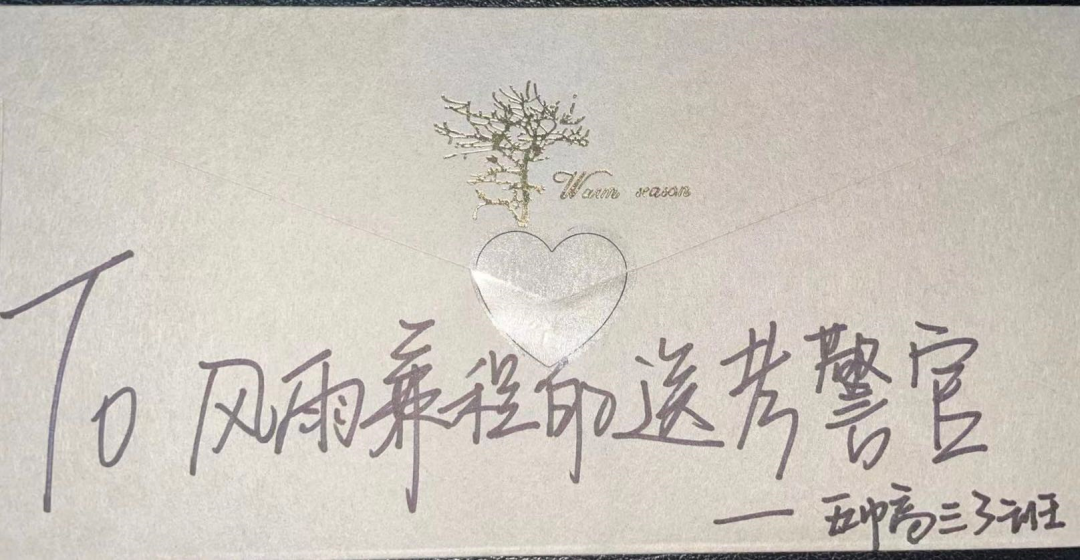 Warm season
To 风雨兼程的送考警官
— 五中高三3班